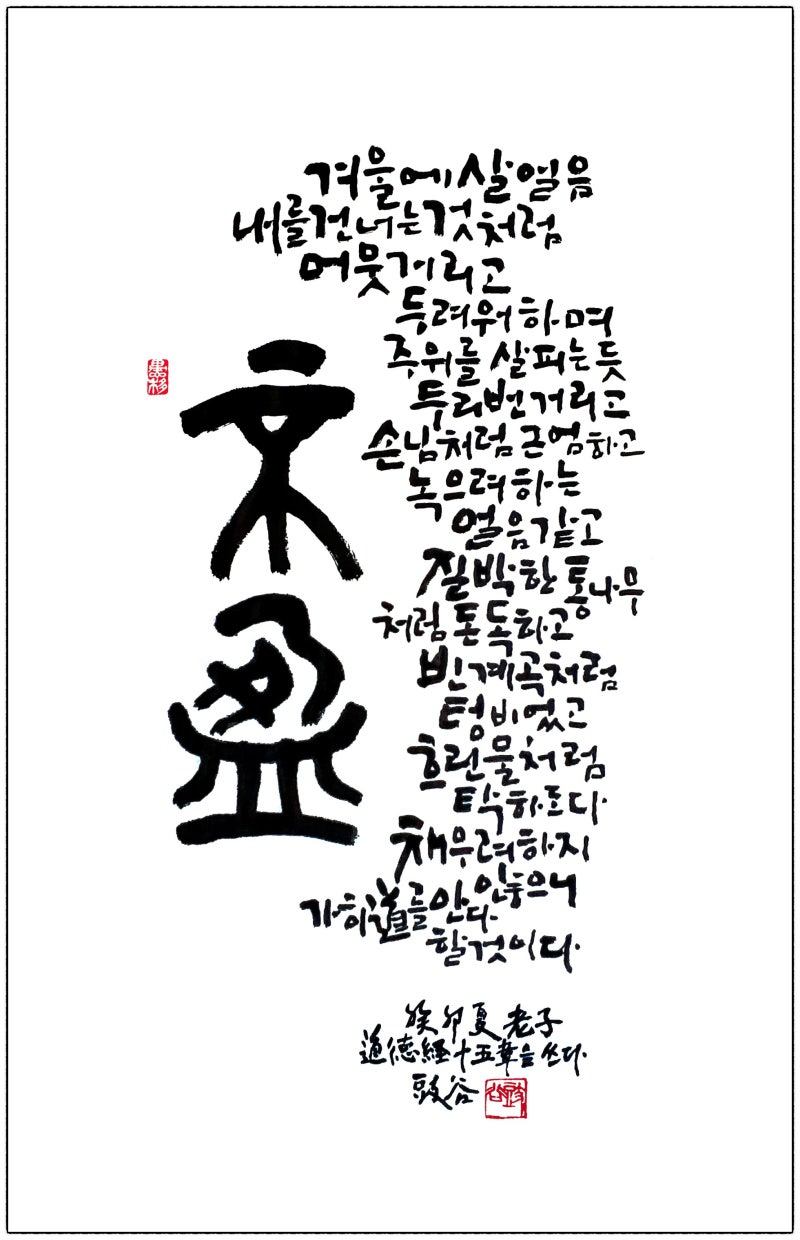 겨울에 살얼음
내를 건너는 것처럼
머뭇거리고
두려워 하며
주위를 살피는 듯
두리번거리고
손님처럼 근엄하고
녹으려 하는
얼음같고
질박한 통나무
처럼 돈독하고
빈 계곡처럼
텅 비었고
흐린 물처럼
탁하도다.
채우려 하지
않으니
가히 道를 안다.
할 것이다.
不盈
愚移
癸卯夏 老子
道德経十五章을 쓰다.
谷